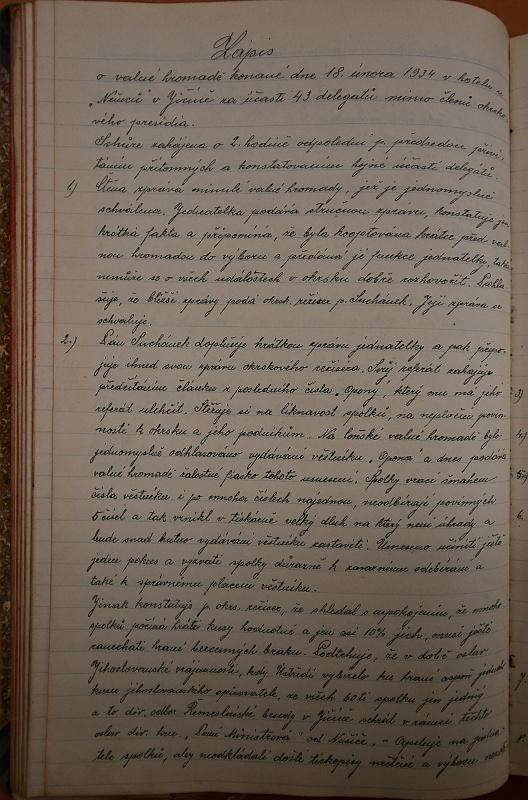 Zápis
o valné hromadě konané dne 18. února 1934 v hotelu u
„Němců" v Jičíně za účasti 43 delegátů mimo členů okrsko-
vého presidia.
Schůze zahájena o 2. hodině odpolední p. předsedou přiví-
táním přítomných a konstatováním hojné účasti delegátů.
1.) Čtena zpráva minulé valné hromady, jež je jednomyslně
schválena. Jednatelka podává stručnou zprávu, konstatuje jen
krátká fakta a připomíná, že byla kooptována krátce před val-
nou hromadou do výboru a předána jí funkce jednatelky, takže
nemůže se o všech událostech v okrsku dobře rozhovořiti. Prohla-
šuje, že bližší zprávy podá okrsk. režiser p. Suchánek. Její zpráva se
schvaluje.
2.) Pan Suchánek doplňuje krátkou zprávu jednatelky a pak připo-
juje ihned svou zprávu okrskového režiséra. Svůj referát zahajuje
předčítáním článku z posledního čísla „Opony", který mu má jeho
referát ulehčit. Stěžuje si na liknavost spolků, na neplnění povin-
ností k okrsku a jeho podnikům. Na loňské valné hromadě bylo
jednomyslně odhlasováno vydávání věstníku „Opona" a dnes podává
valné hromadě žalostné fiasko tohoto usnesení. Spolky vrací
čísla věstníku i po mnoha číslech najednou, neodbírají povinných
5 čísel a tak vznikl v tiskárně velký dluh na který není úhrady a
bude snad nutno vydávání věstníku zastaviti. Usneseno učiniti ještě
jeden pokus a vyzvati spolky důrazně k odebírání a
také k správnému placení věstníku.
Jinak konstatuje p. okrs. režiser, že shledal s uspokojením, že mnoho
spolků počíná hráti kusy hodnotné a jen asi 10% jich, musí ještě
zanechati hraní bezcenných braků. Podtrhuje, že v době oslav
Jihoslovanské vzájemnosti, kdy Ústředí vybízelo ku hraní aspoň jednoho
kusu jihoslovanského spisovatele, ze všech 60ti spolků jen jediný
a to div. odbor Řemeslnické besedy v Jičíně sehrál v rámci těchto
oslav div. hru „Paní Ministrová" od Nušiče. – Apeluje na jedna-
tele spolků, aby neodkládali došlé tiskopisy nečtené a výboru
3)
4.)
5.)
6.
7.
8.